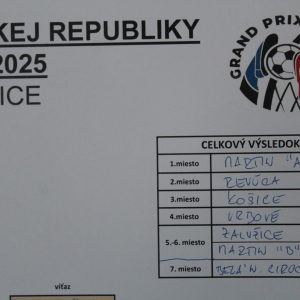 KEJ REPUBLIKY
2025
ICE
GRAND PRIX
CELKOVÝ VÝSLEDOK
1.miesto MARTIN "A
2.miesto REVÚCA
3.miesto KOŠICE
4.miesto VRBOVÉ
5.-6. miesto ZALUŽICE
MARTIN "B"
7. miesto
víťaz